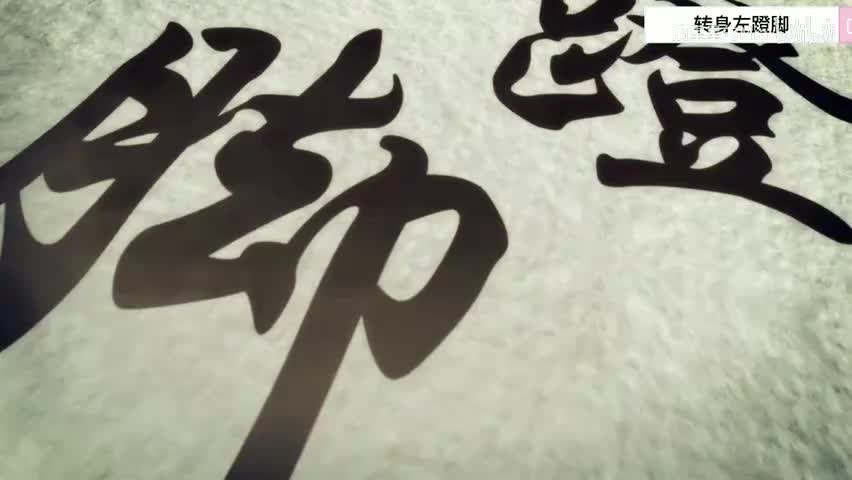 转身左蹬脚
蹬脚